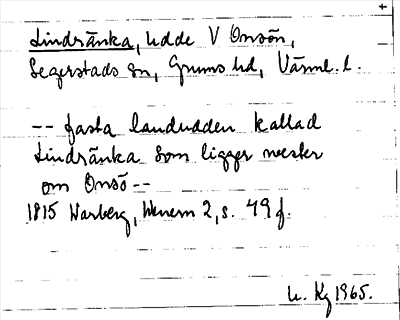 Lindränka, udde V Onsön,
Segerstads sn, Grums hd, Värml. l.
-- fasta landudden kallad
Lindränka som ligger wester
om Onsö --
1815 Warberg, Wenern 2, s. 49 f.
u. Kg 1965.